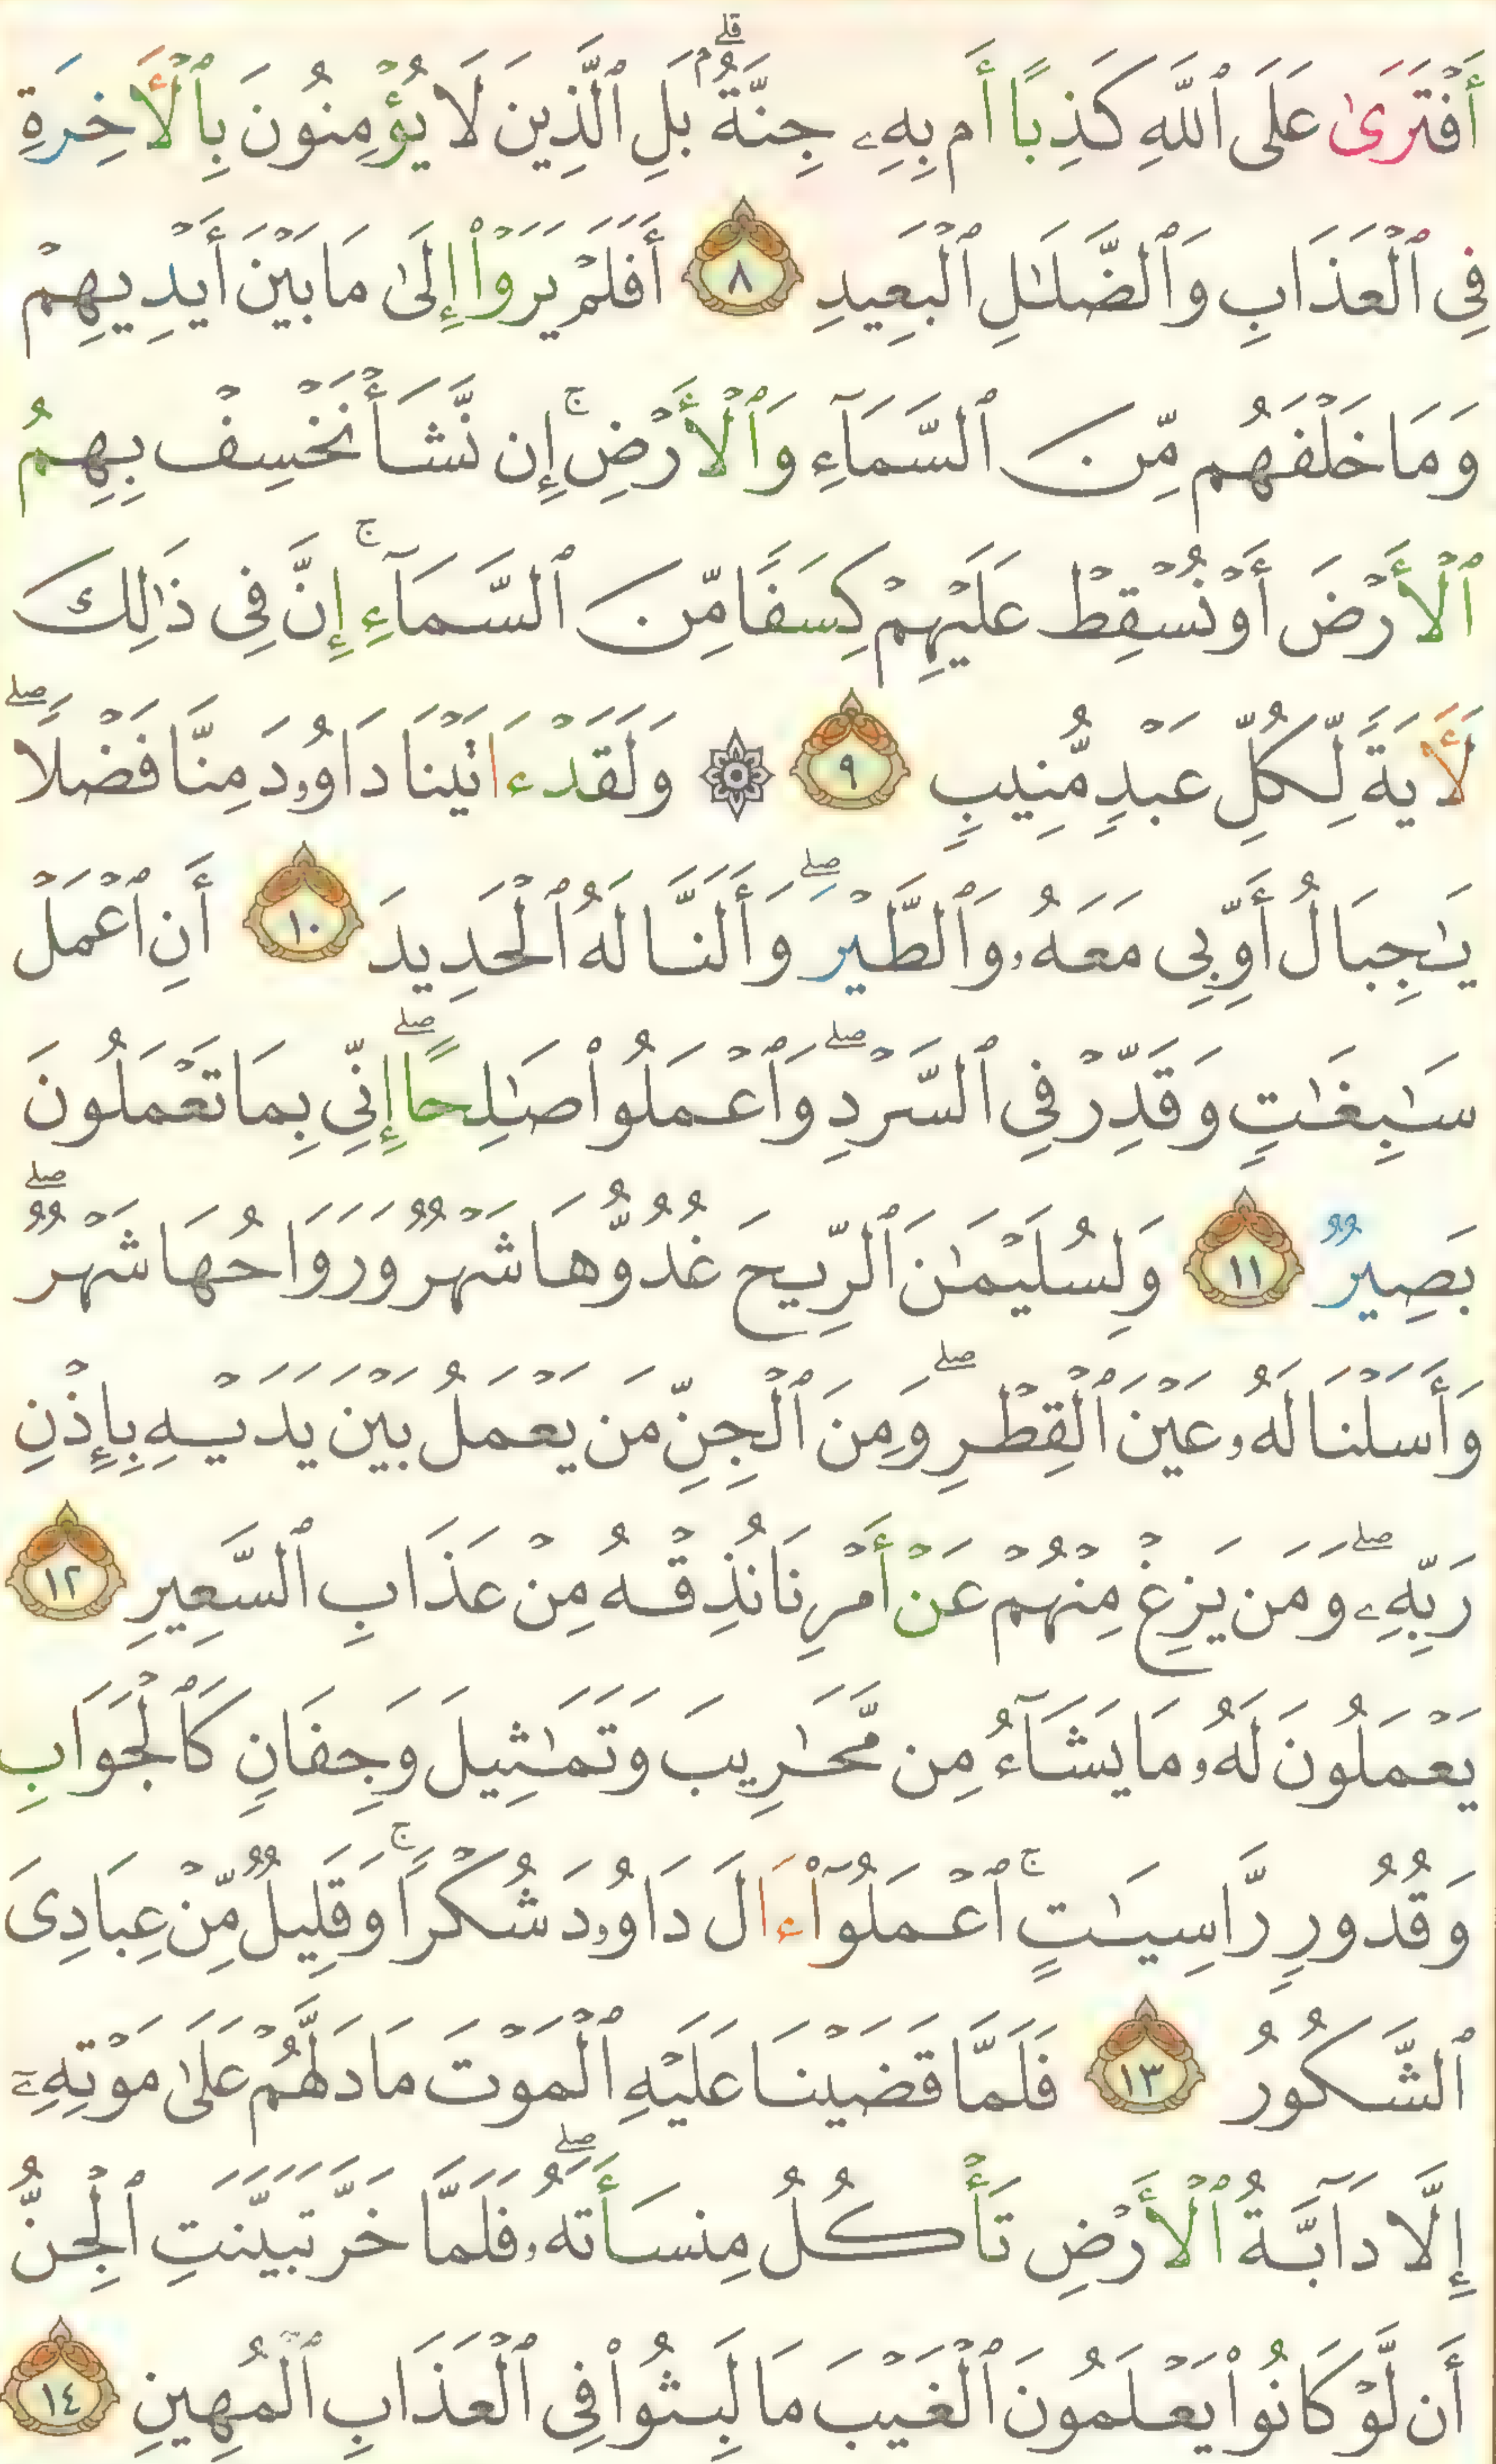 أَفْتَرَىٰ عَلَى ٱللَّهِ كَذِبًا أَم بِهِۦ جِنَّةٌۢ ۗ بَلِ ٱلَّذِينَ لَا يُؤْمِنُونَ بِٱلْأَخِرَةِ
فِى ٱلْعَذَابِ وَٱلضَّلَٰلِ ٱلْبَعِيدِ ٨ أَفَلَمْ يَرَوْا۟ إِلَىٰ مَا بَيْنَ أَيْدِيهِمْ
وَمَا خَلْفَهُم مِّنَ ٱلسَّمَآءِ وَٱلْأَرْضِ ۚ إِن نَّشَأْ نَخْسِفْ بِهِمُ
ٱلْأَرْضَ أَوْ نُسْقِطْ عَلَيْهِمْ كِسَفًا مِّنَ ٱلسَّمَآءِ ۚ إِنَّ فِى ذَٰلِكَ
لَأَيَةً لِّكُلِّ عَبْدٍ مُّنِيبٍ ٩ ۞ وَلَقَدْ ءَاتَيْنَا دَاوُۥدَ مِنَّا فَضْلًا ۖ
يَٰجِبَالُ أَوِّبِى مَعَهُۥ وَٱلطَّيْرَ ۖ وَأَلَنَّا لَهُ ٱلْحَدِيدَ ١٠ أَنِ ٱعْمَلْ
سَٰبِغَٰتٍ وَقَدِّرْ فِى ٱلسَّرْدِ ۖ وَٱعْمَلُوا۟ صَٰلِحًا ۖ إِنِّى بِمَا تَعْمَلُونَ
بَصِيرٌ ١١ وَلِسُلَيْمَٰنَ ٱلرِّيحَ غُدُوُّهَا شَهْرٌ وَرَوَاحُهَا شَهْرٌ ۖ
وَأَسَلْنَا لَهُۥ عَيْنَ ٱلْقِطْرِ ۖ وَمِنَ ٱلْجِنِّ مَن يَعْمَلُ بَيْنَ يَدَيْهِ بِإِذْنِ
رَبِّهِۦ ۖ وَمَن يَزِغْ مِنْهُمْ عَنْ أَمْرِنَا نُذِقْهُ مِنْ عَذَابِ ٱلسَّعِيرِ ١٢
يَعْمَلُونَ لَهُۥ مَا يَشَآءُ مِن مَّحَٰرِيبَ وَتَمَٰثِيلَ وَجِفَانٍ كَٱلْجَوَابِ
وَقُدُورٍ رَّاسِيَٰتٍ ۚ ٱعْمَلُوٓا۟ ءَالَ دَاوُۥدَ شُكْرًا ۚ وَقَلِيلٌ مِّنْ عِبَادِىَ
ٱلشَّكُورُ ١٣ فَلَمَّا قَضَيْنَا عَلَيْهِ ٱلْمَوْتَ مَا دَلَّهُمْ عَلَىٰ مَوْتِهِۦٓ
إِلَّا دَآبَّةُ ٱلْأَرْضِ تَأْكُلُ مِنسَأَتَهُۥ ۖ فَلَمَّا خَرَّ تَبَيَّنَتِ ٱلْجِنُّ
أَن لَّوْ كَانُوا۟ يَعْلَمُونَ ٱلْغَيْبَ مَا لَبِثُوا۟ فِى ٱلْعَذَابِ ٱلْمُهِينِ ١٤